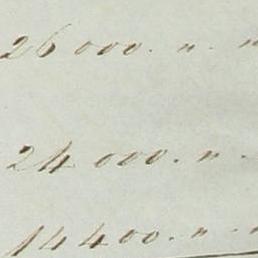 26 000. " "
24 000. " "
14400. " "